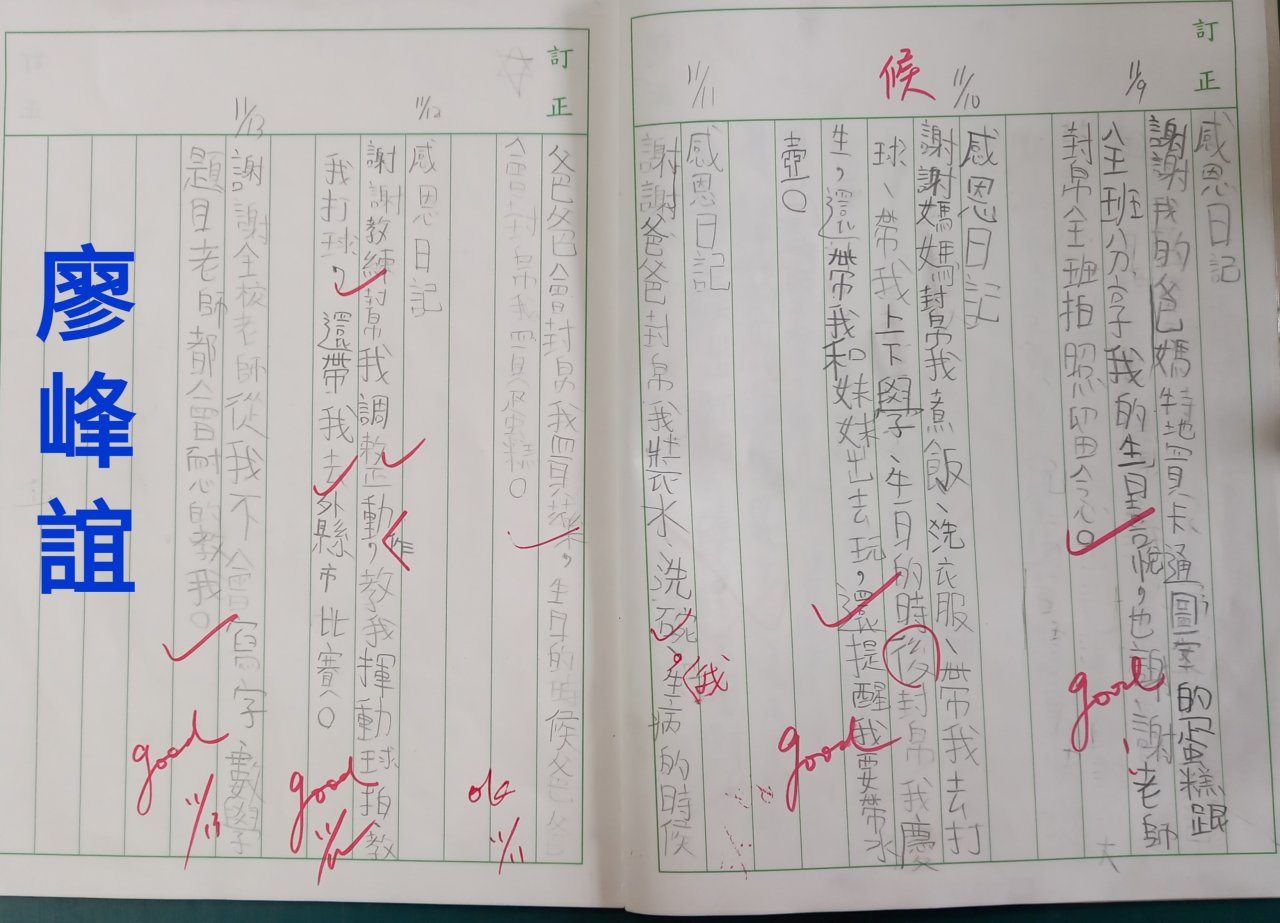 訂正
11/9
感恩日記
謝謝我的爸媽特地買卡通圖案的蛋糕跟
全班分享我的生日喜悅,也謝謝老師
封帛全班拍照留念。
good
11/10
候
感恩日記
謝謝媽媽封帛我煮飯、洗衣服、帶我去打
球、帶我上下學、生日的時後封帛我慶
生,還帶我和妹妹出去玩,還提醒我要帶水
壺。
good
11/11
感恩日記
謝謝爸爸封帛我裝水、洗碗,我生病的時候
訂正
爸爸會封帛我買藥,生日的時候爸爸
會封帛我買蛋糕。
ok
11/11
11/12
感恩日記
謝謝教練封帛我調整動作,教我揮動球拍、教
我打球,還帶我去外縣市比賽。
good
11/12
11/13
謝謝全校老師從我不會寫字數學
題目老師都會耐心的教我。
good
11/13
廖峰誼